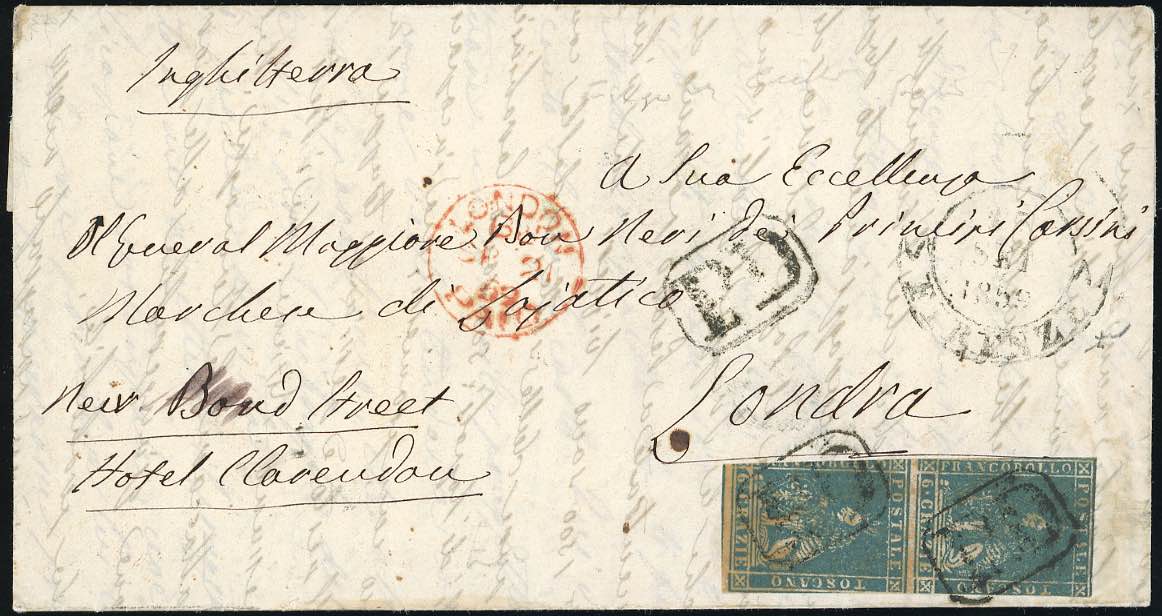 Inghilterra
A Sua Eccellenza
Il General Maggiore Don Neri dei Principi Corsini
Marchese di Lajatico
Londra
New Bond Street
Hotel Clarendon
LONDON
PAID
PD
FIRENZE
1859
FRANCOBOLLO
POSTALE
TOSCANO
FRANCOBOLLO
POSTALE
TOSCANO
6. CRAZIE